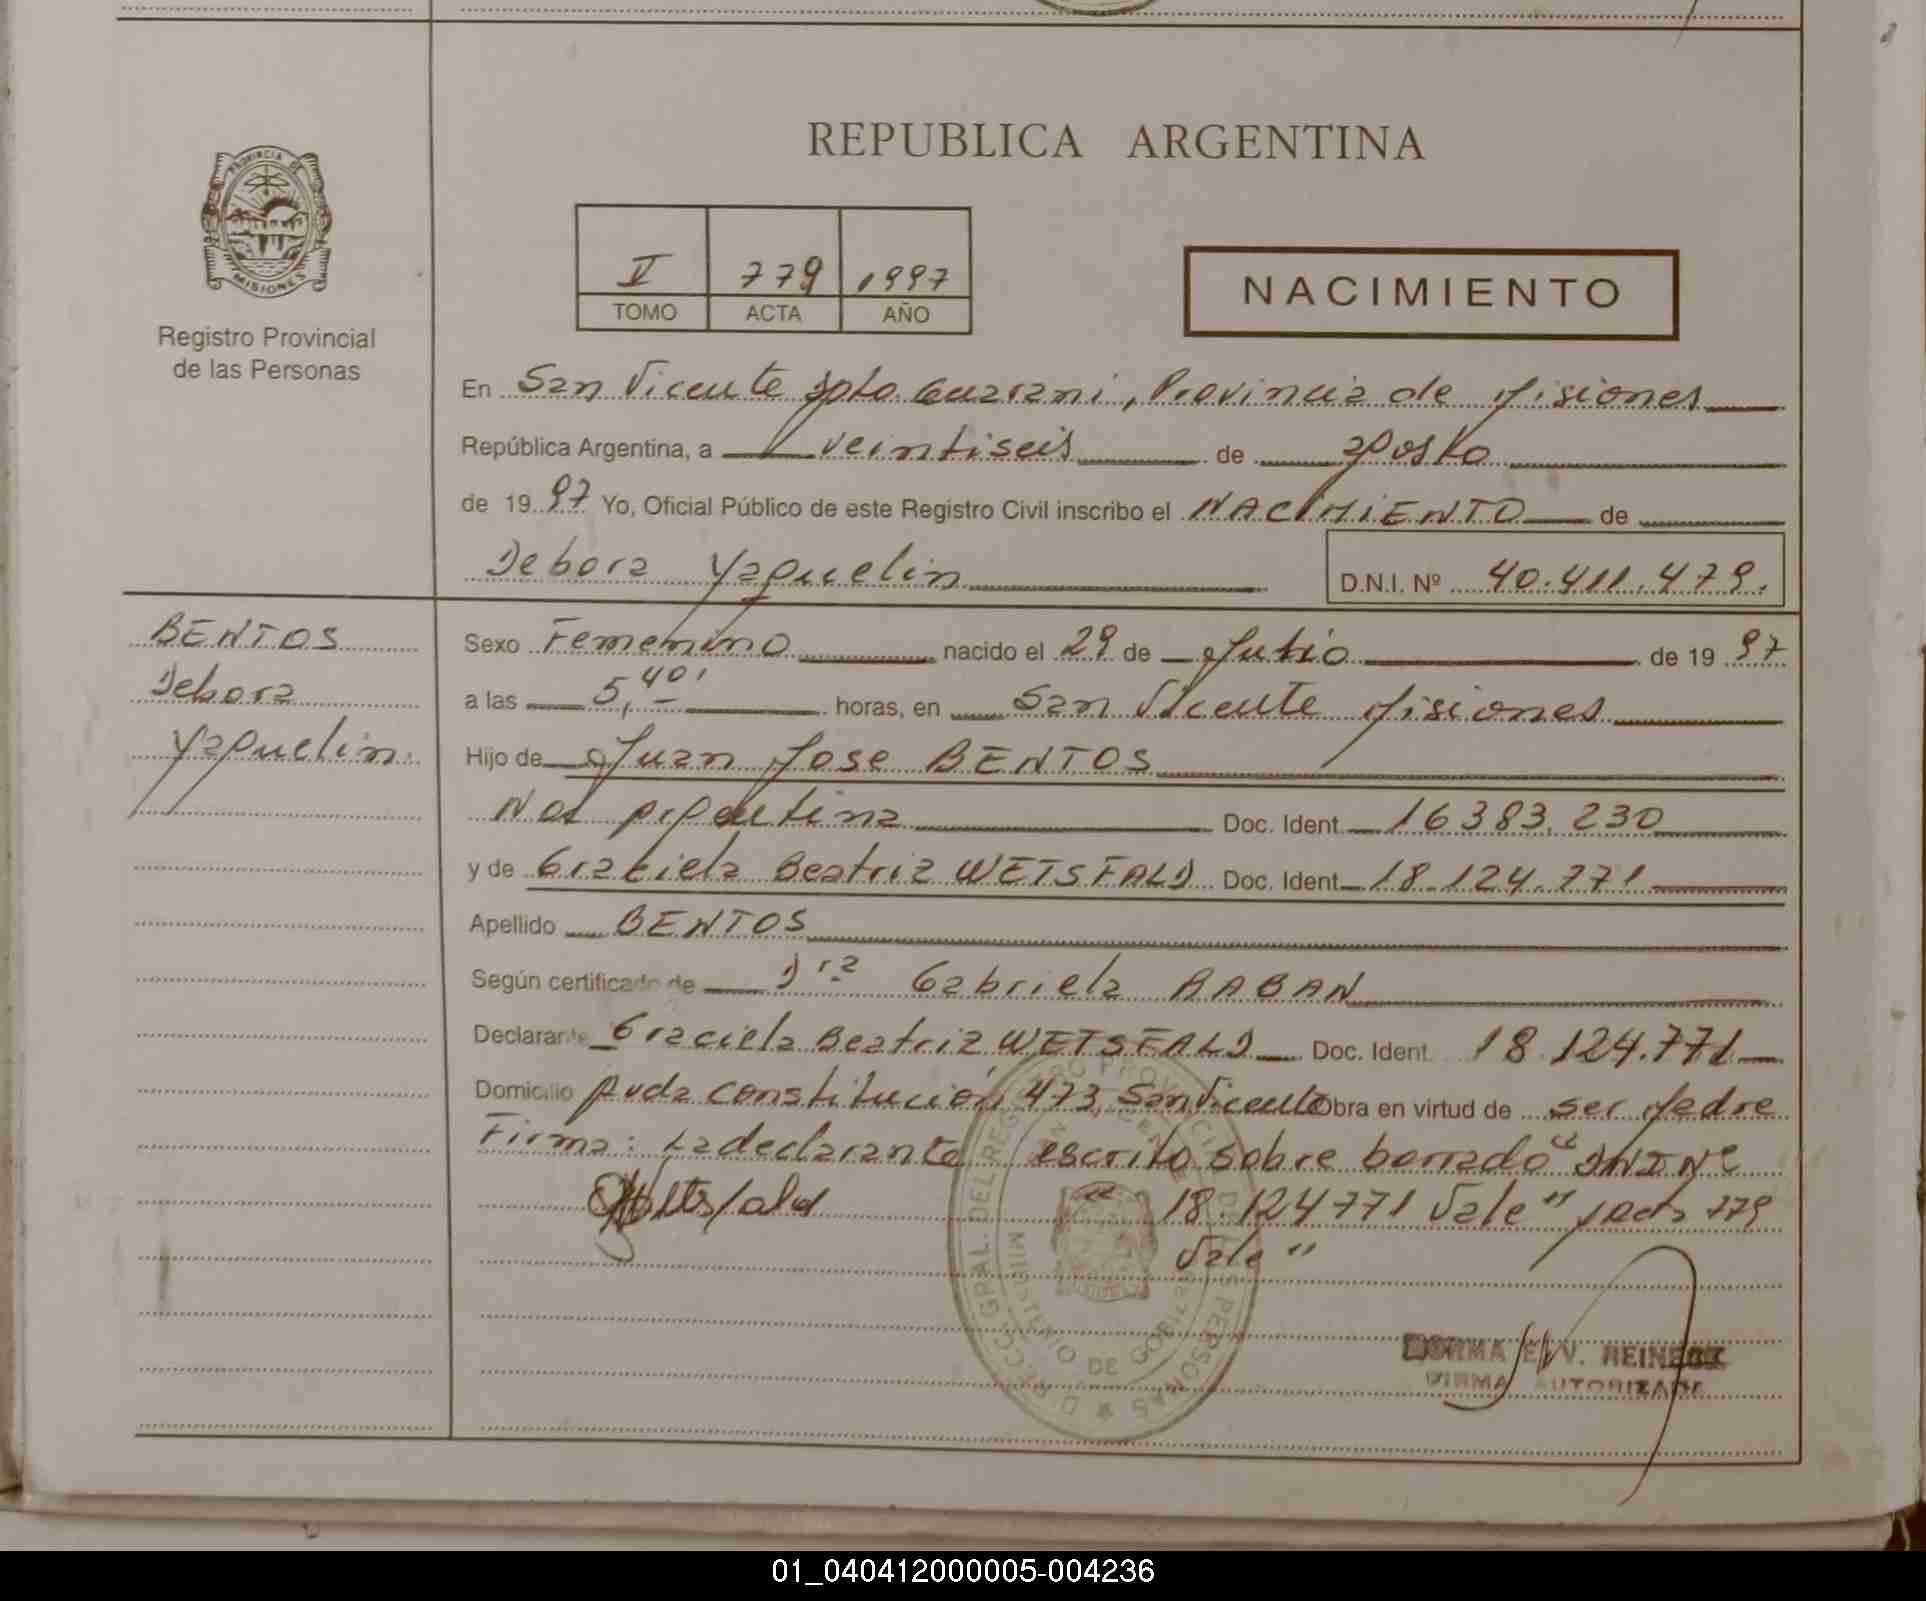 REPUBLICA ARGENTINA
PROVINCIA DE
MISIONES
Registro Provincial
de las Personas
V 779 1997
TOMO ACTA AÑO
NACIMIENTO
En San Vicente Dpto. Guarani, Provincia de Misiones
República Argentina, a veintiseis de agosto
de 19 97 Yo, Oficial Público de este Registro Civil inscribo el NACIMIENTO de
Debora Yaquelin D.N.I. Nº 40.411.479.
BENTOS
Debora
Yaquelin.
Sexo Femenino nacido el 29 de Julio de 19 97
a las 5,40' horas, en San Vicente Misiones
Hijo de Juan Jose BENTOS
Nac Argentina Doc. Ident. 16383.230
y de Graciela Beatriz WETSFALD Doc. Ident. 18.124.771
Apellido BENTOS
Según certificado de Dra Gabriela RABAN
Declarante Graciela Beatriz WETSFALD Doc. Ident. 18.124.771
Domicilio Avda Constitución 473, San Vicente Obra en virtud de ser Madre
Firma: La declarante escrito sobre borrado "DNI Nº
18.124771 Vale" Acta 779
Vale"
DIRECC. GRAL. DEL REGISTRO PROVINCIAL DE LAS PERSONAS
MINISTERIO DE GOBIERNO
NORMA E. V.
FIRMA AUTORIZADA
01_040412000005-004236